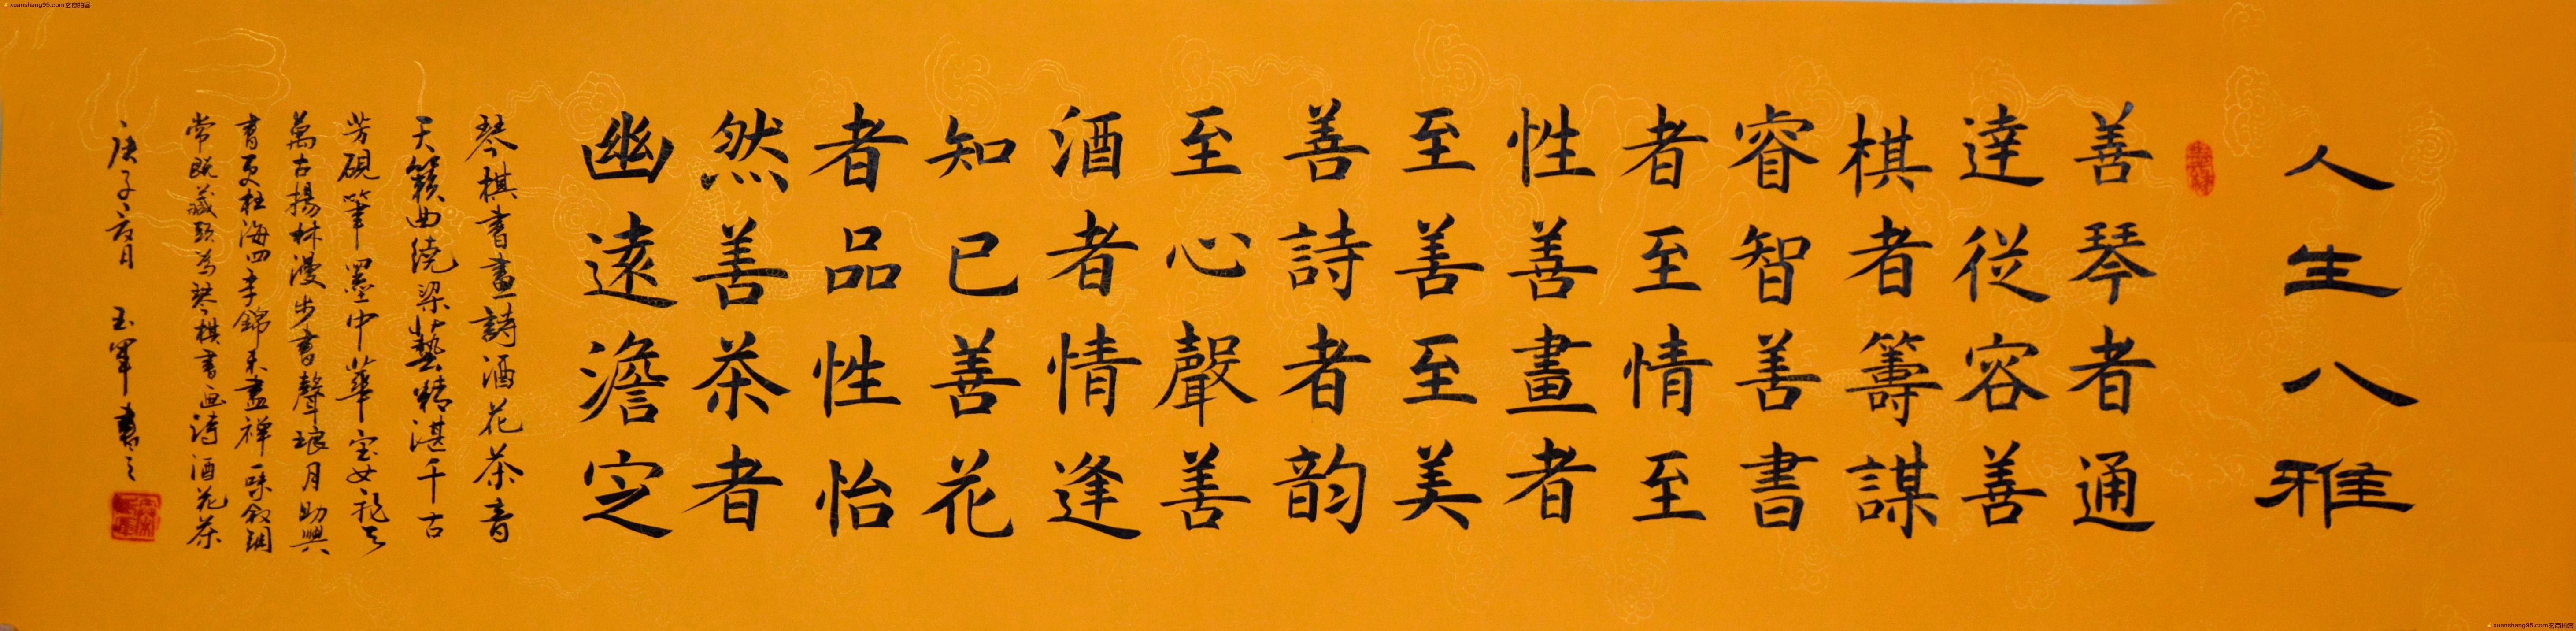 人生八雅
善琴者通
達從容善
棋者籌謀
睿智善書
者至情至
性善畫者
至善至美
善詩者韵
至心聲善
酒者情逢
知已善花
者品性怡
然善茶者
幽遠澹定
琴棋書畫詩酒花茶音
天籟曲繞梁藝精湛千古
芳硯筆墨中華宝
萬古揚林漫步書聲琅月助興
海四季錦未盡禪一味敘
常既藏頭為琴棋書画詩酒花茶
庚子 月 玉軍書之
xuanshang95.com玄商拍図
xuanshang95.com玄商拍図